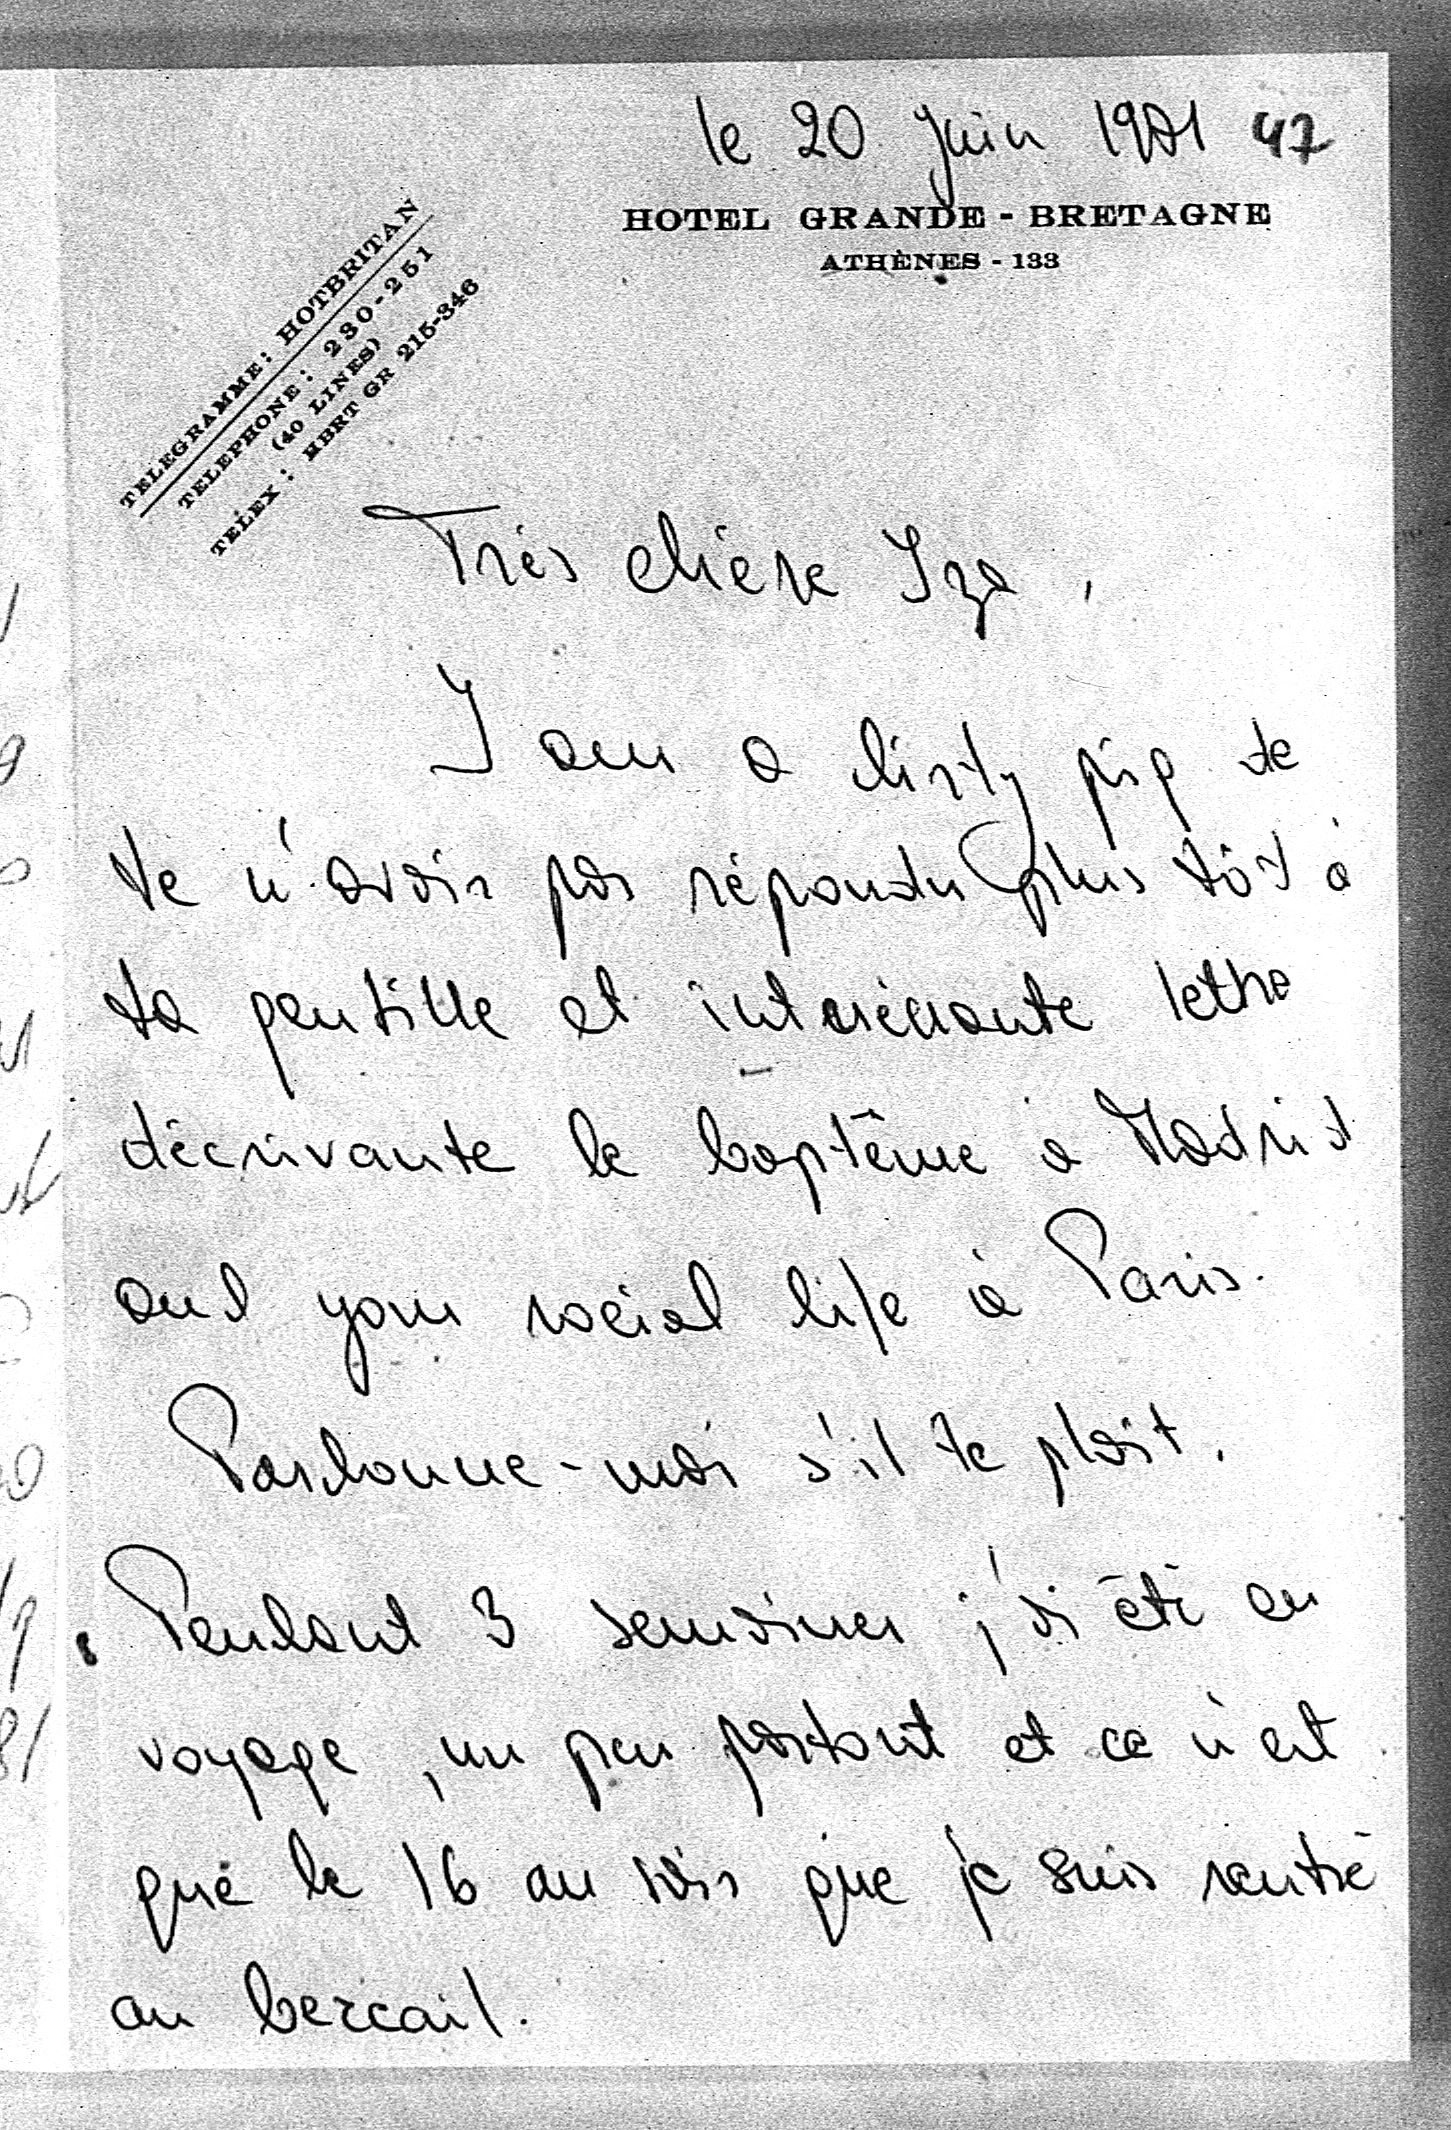 le 20 Juin 1981 47
HOTEL GRANDE - BRETAGNE
ATHÈNES - 133
TELEGRAMME: HOTBRITAN
TELEPHONE: 230-251
(40 LINES)
TELEX: HBRT GR 215-346
Très chère Iza,
I am a dirty pig de
te n'avoir pas répondu plus tôt à
ta gentille et intéressante lettre
décrivante le baptême à Madrid
and your social life à Paris.
Pardonne-moi s'il te plait.
Pendant 3 semaines j'ai été en
voyage, un peu partout et ce n'est
que le 16 au soir que je suis rentré
au bercail.